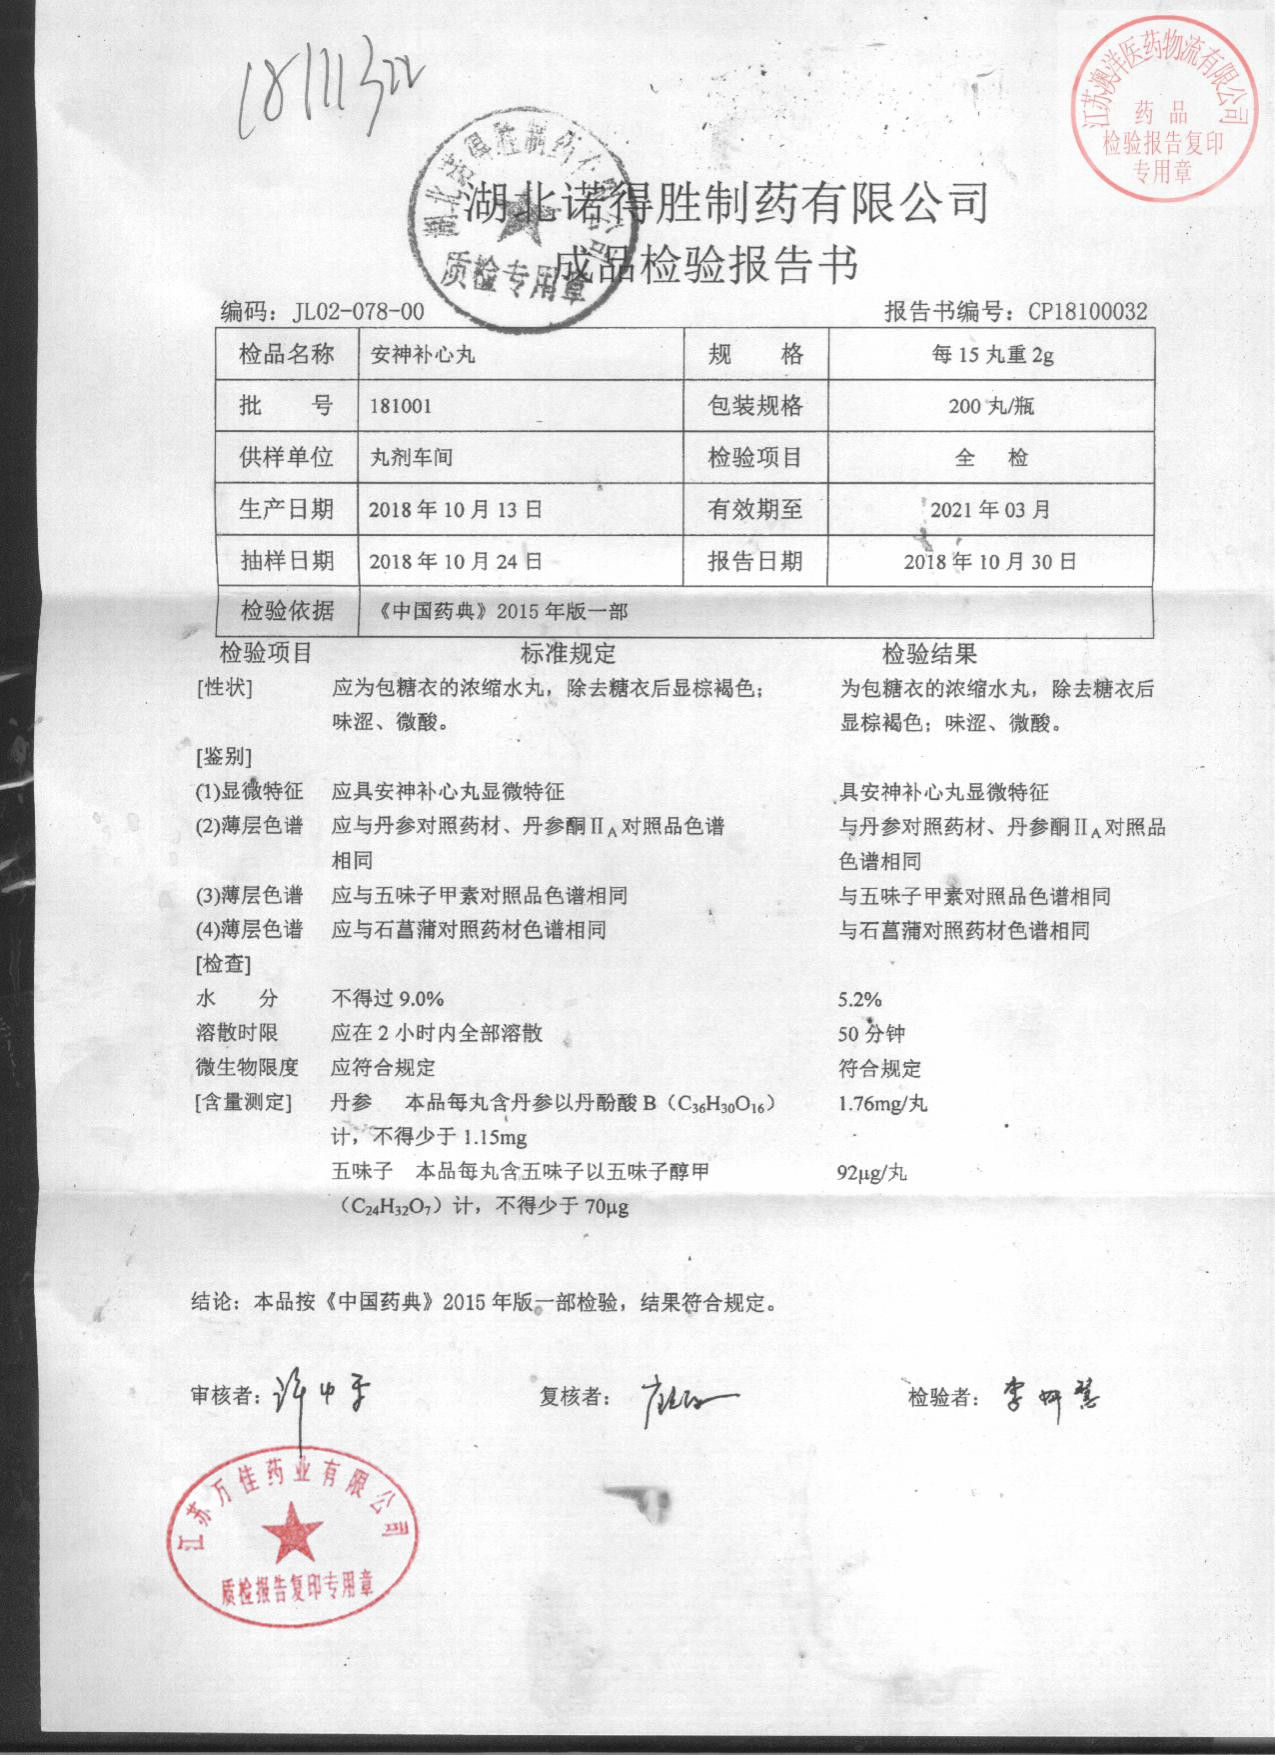 18111322
江苏澳洋医药物流有限公司
药品
检验报告复印
专用章
湖北诺得胜制药有限公司
质检专用章
湖北诺得胜制药有限公司
成品检验报告书
编码：JL02-078-00 报告书编号：CP18100032
检品名称 安神补心丸 规 格 每 15 丸重 2g
批 号 181001 包装规格 200 丸/瓶
供样单位 丸剂车间 检验项目 全 检
生产日期 2018 年 10 月 13 日 有效期至 2021 年 03 月
抽样日期 2018 年 10 月 24 日 报告日期 2018 年 10 月 30 日
检验依据 《中国药典》2015 年版一部
检验项目 标准规定 检验结果
[性状] 应为包糖衣的浓缩水丸，除去糖衣后显棕褐色； 为包糖衣的浓缩水丸，除去糖衣后
味涩、微酸。 显棕褐色；味涩、微酸。
[鉴别]
(1)显微特征 应具安神补心丸显微特征 具安神补心丸显微特征
(2)薄层色谱 应与丹参对照药材、丹参酮ⅡA对照品色谱 与丹参对照药材、丹参酮ⅡA对照品
相同 色谱相同
(3)薄层色谱 应与五味子甲素对照品色谱相同 与五味子甲素对照品色谱相同
(4)薄层色谱 应与石菖蒲对照药材色谱相同 与石菖蒲对照药材色谱相同
[检查]
水 分 不得过 9.0% 5.2%
溶散时限 应在 2 小时内全部溶散 50 分钟
微生物限度 应符合规定 符合规定
[含量测定] 丹参 本品每丸含丹参以丹酚酸 B（C36H30O16） 1.76mg/丸
计，不得少于 1.15mg
五味子 本品每丸含五味子以五味子醇甲 92μg/丸
（C24H32O7）计，不得少于 70μg
结论：本品按《中国药典》2015 年版一部检验，结果符合规定。
审核者： 复核者： 检验者：
江苏万佳药业有限公司
质检报告复印专用章